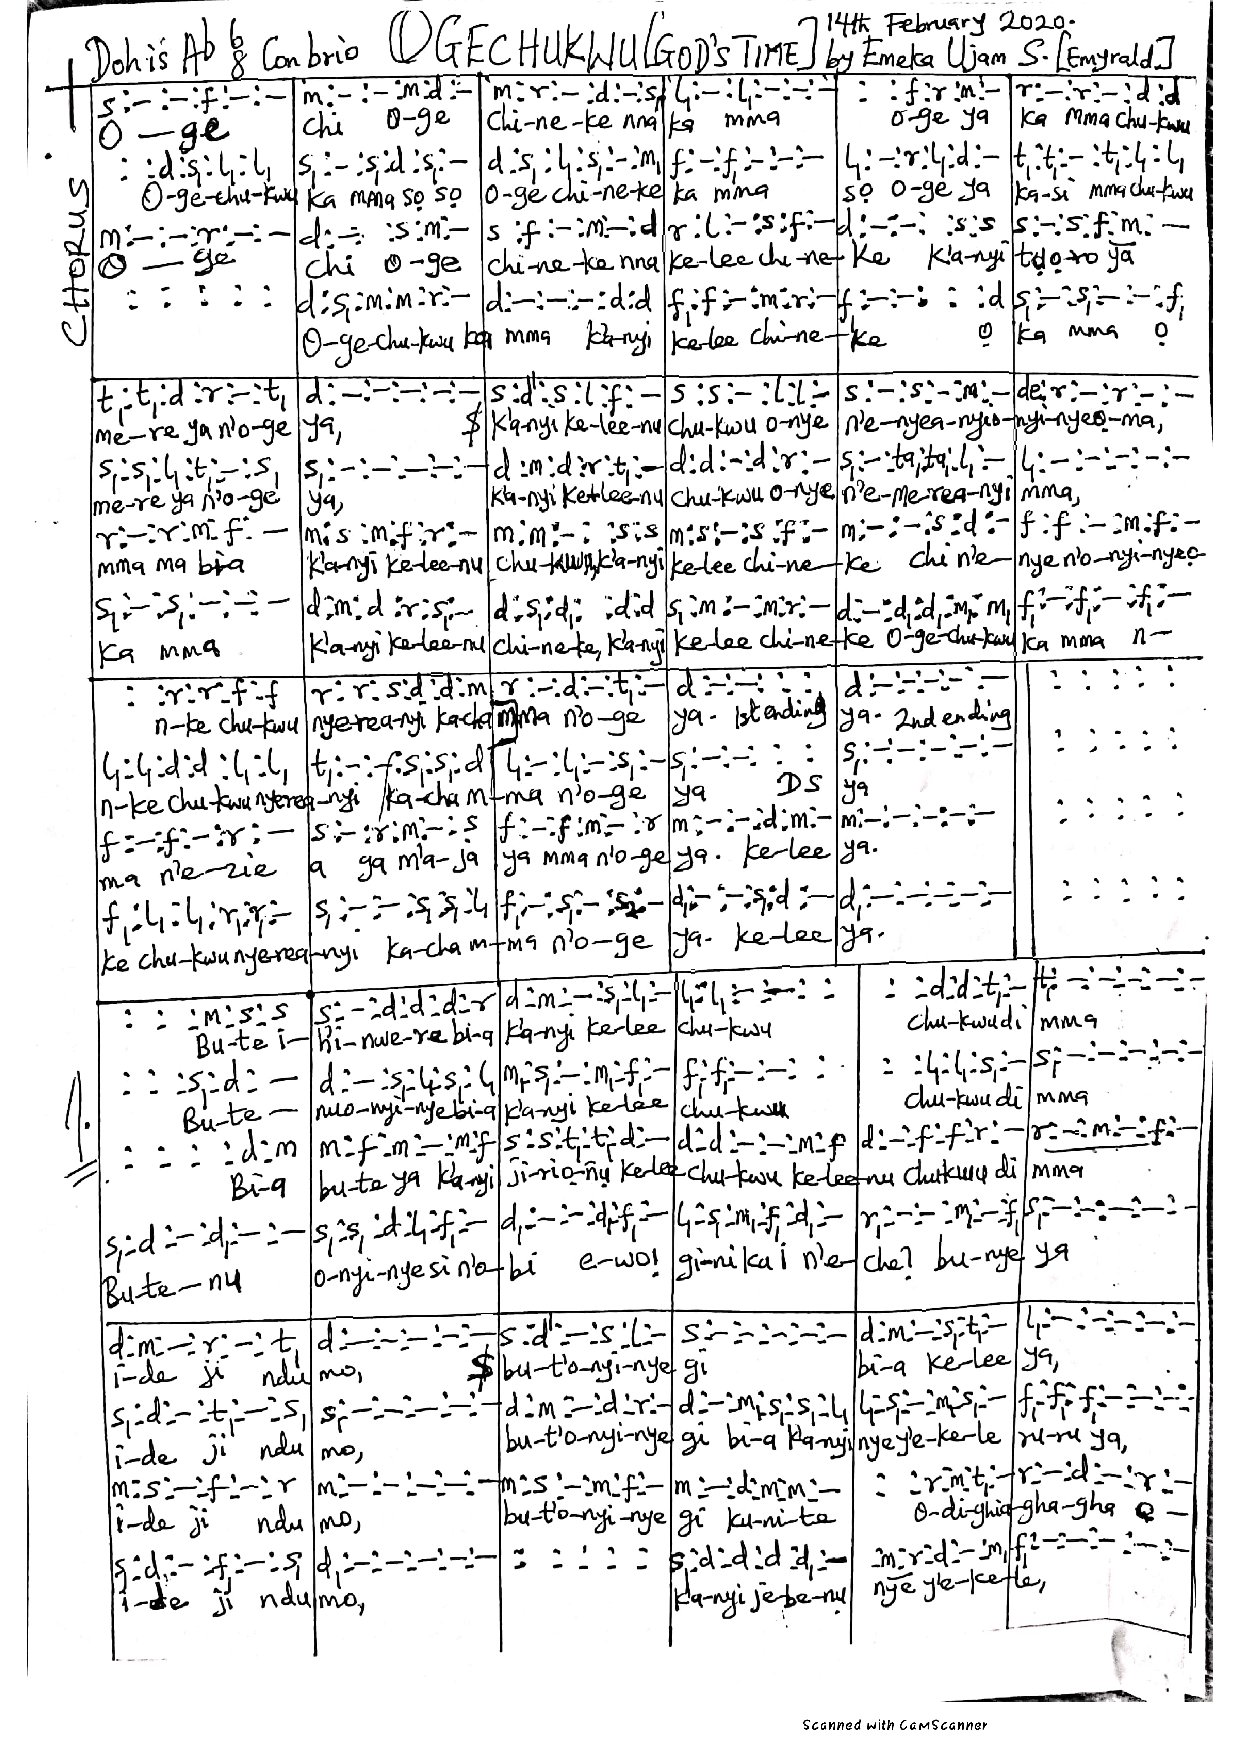 Doh is Ab & Con brio OGECHUKWU [GOD'S TIME] 14th February 2020.
by Emeka Ujam S. [Emyrald]
CHORUS
s:-:-:f:-:- m:-:-:m:d:- m:r:-:d:-:s, l,:-:l,:-:-:- : :f:r:m:- r:-:r:-:d:d
O — ge chi O-ge chi-ne-ke nna ka mma o-ge ya ka mma chu-kwu
: :d:s,:l,:l, s,:-:s,:d:s,:- d:s,:l,:s,:-:m, f,:-:f,:-:-:- l,:-:r:l,:d:- t,:t,:-:t,:l,:l,
O-ge-chu-kwu ka mma sọ sọ O-ge chi-ne-ke ka mma sọ o-ge ya ka-si mma chu-kwu
m:-:-:r:-:- d:-: :s:m:- s:f:-:m:-:d r:l:-:s:f:- d:-:-: :s:s s:-:s:f:m:-
O — ge chi O-ge chi-ne-ke nna ke-lee chi-ne- ke Ka-nyi
: : : : : d:s,:m:m:r:- d:-:-:-:d:d f,:f,:-:m:r:- f:-:-: : :d s,:-:s,:-:-:f,
O-ge-chu-kwu ka mma ka-nyi ke-lee chi-ne- ke O ka mma O
t,:t,:d:r:-:t, d:-:-:-:-:- s:d':s:l:f:- s:s:-:l:l:- s:-:s:-:m:- de:r:-:r:-:-
me-re ya n'o-ge ya, $ Ka-nyi ke-lee-nu chu-kwu o-nye n'e-nyea-nyi o-nyi-nye ọ-ma,
s,:s,:l,:t,:-:s, s,:-:-:-:-:- d:m:d:r:t,:- d:d:-:d:r:- s,:-:ta,:ta,:l,:- l,:-:-:-:-:-
me-re ya n'o-ge ya, Ka-nyi ke-lee-nu chu-kwu o-nye n'e-me-rea-nyi mma,
r:-:r:m:f:- m:s:m:f:r:- m:m:-: :s:s m:s:-:s:f:- m:-:-:s:d:- f:f:-:m:f:-
mma ma bia Ka-nyi ke-lee-nu chu-kwu, ka-nyi ke-lee chi-ne- ke chi n'e- nye n'o-nyi-nye ọ-
s,:-:s,:-:-:- d:m:d:r:s,:- d:s,:d,: :d:d s,:m:-:m:r:- d:-:d,:d,:m,:m, f,:-:f,:-:f,:-
ka mma Ka-nyi ke-lee-nu chi-ne-ke, ka-nyi ke-lee chi-ne- ke O-ge-chu-kwu ka mma n-
: :r:r:f:f r:r:s:d:d:m r:-:d:-:t,:- d:-:-: : : d:-:-:-:-:- : : : : :
n-ke chu-kwu nye-rea-nyi ka-cha mma n'o-ge ya. 1st ending ya. 2nd ending
l,:l,:d:d:l,:l, t,:-:-:f:s,:s,:d l,:-:l,:-:s,:- s,:-:-: : : s,:-:-:-:-:- : : : : :
n-ke chu-kwu nyerea-nyi ka-cha m-ma n'o-ge ya DS ya
f:-:f:-:r:- s:-:r:m:-:s f:-:f:m:-:r m:-:-:d:m:- m:-:-:-:-:- : : : : :
ma n'e-zie a ga m'a-ja ya mma n'o-ge ya. ke-lee ya.
f,:l,:l,:r,:r,:- s,:-:-:s,:s,:l, f,:-:s,:-:s,:- d,:-:-:s,:d:- d,:-:-:-:-:- : : : : :
ke chu-kwu nyerea-nyi ka-cha m-ma n'o-ge ya. ke-lee ya.
1.
: : :m:s:s s:-:d:d:d:r d:m:-:s,:l,:- l,:l,:-:-: : : :d:d:t,:- t,:-:-:-:-:-
Bu-te i- hi-nwe-re bi-a ka-nyi ke-lee chu-kwu chu-kwu di mma
: : :s,:d:- d:-:s,:l,:s,:l, m,:s,:-:m,:f,:- f,:f,:-:-: : : :l,:l,:s,:- s,:-:-:-:-:-
Bu-te — nuo-nyi-nye bi-a ka-nyi ke-lee chu-kwu chu-kwu di mma
: : : :d:m m:f:m:-:m:f s:s:t,:t,:d:- d:d:-:-:m:f d:-:f:f:r:- r:-:m:-:f:-
Bi-a bu-te ya ka-nyi ji-rio-nu ke-lee chu-kwu ke-lee-nu chukwu di mma
s,:d:-:d,:-:- s,:s,:d:l,:f,:- d,:-:-:d,:f,:- l,:s,:m,:f,:d,:- r,:-:-:m,:-:f, s,:-:-:-:-:-
Bu-te-nu o-nyi-nye si n'o- bi e-wo! gi-ni ka i n'e- che? bu-nye ya
d:m:-:r:-:t, d:-:-:-:-:- s:d':-:s:l:- s:-:-:-:-:- d:m:-:s,:t,:- l,:-:-:-:-:-
i-de ji ndu mo, $ bu-t'o-nyi-nye gi bi-a ke-lee ya,
s,:d:-:t,:-:s, s,:-:-:-:-:- d:m:-:d:r:- d:-:m,:s,:s,:l, l,:s,:-:m,:s,:- f,:f,:f,:-:-:-
i-de ji ndu mo, bu-t'o-nyi-nye gi bi-a ka-nyi nye y'e-ke-le ru-ru ya,
m:s:-:f:-:r m:-:-:-:-:- m:s:-:m:f:- m:-:d:m:m:- : :r:m:t,:- r:-:d:-:r:-
i-de ji ndu mo, bu-t'o-nyi-nye gi ku-ni-te o-di-ghia-gha-gha
s,:d,:-:f,:-:s, d,:-:-:-:-:- : : : : : s,:d:d:d:d,:- m:r:d:-:m, f,:-:-:-:-:-
i-de ji ndu mo, ka-nyi je-be-nu nye y'e-ke-le,
Scanned with CamScanner